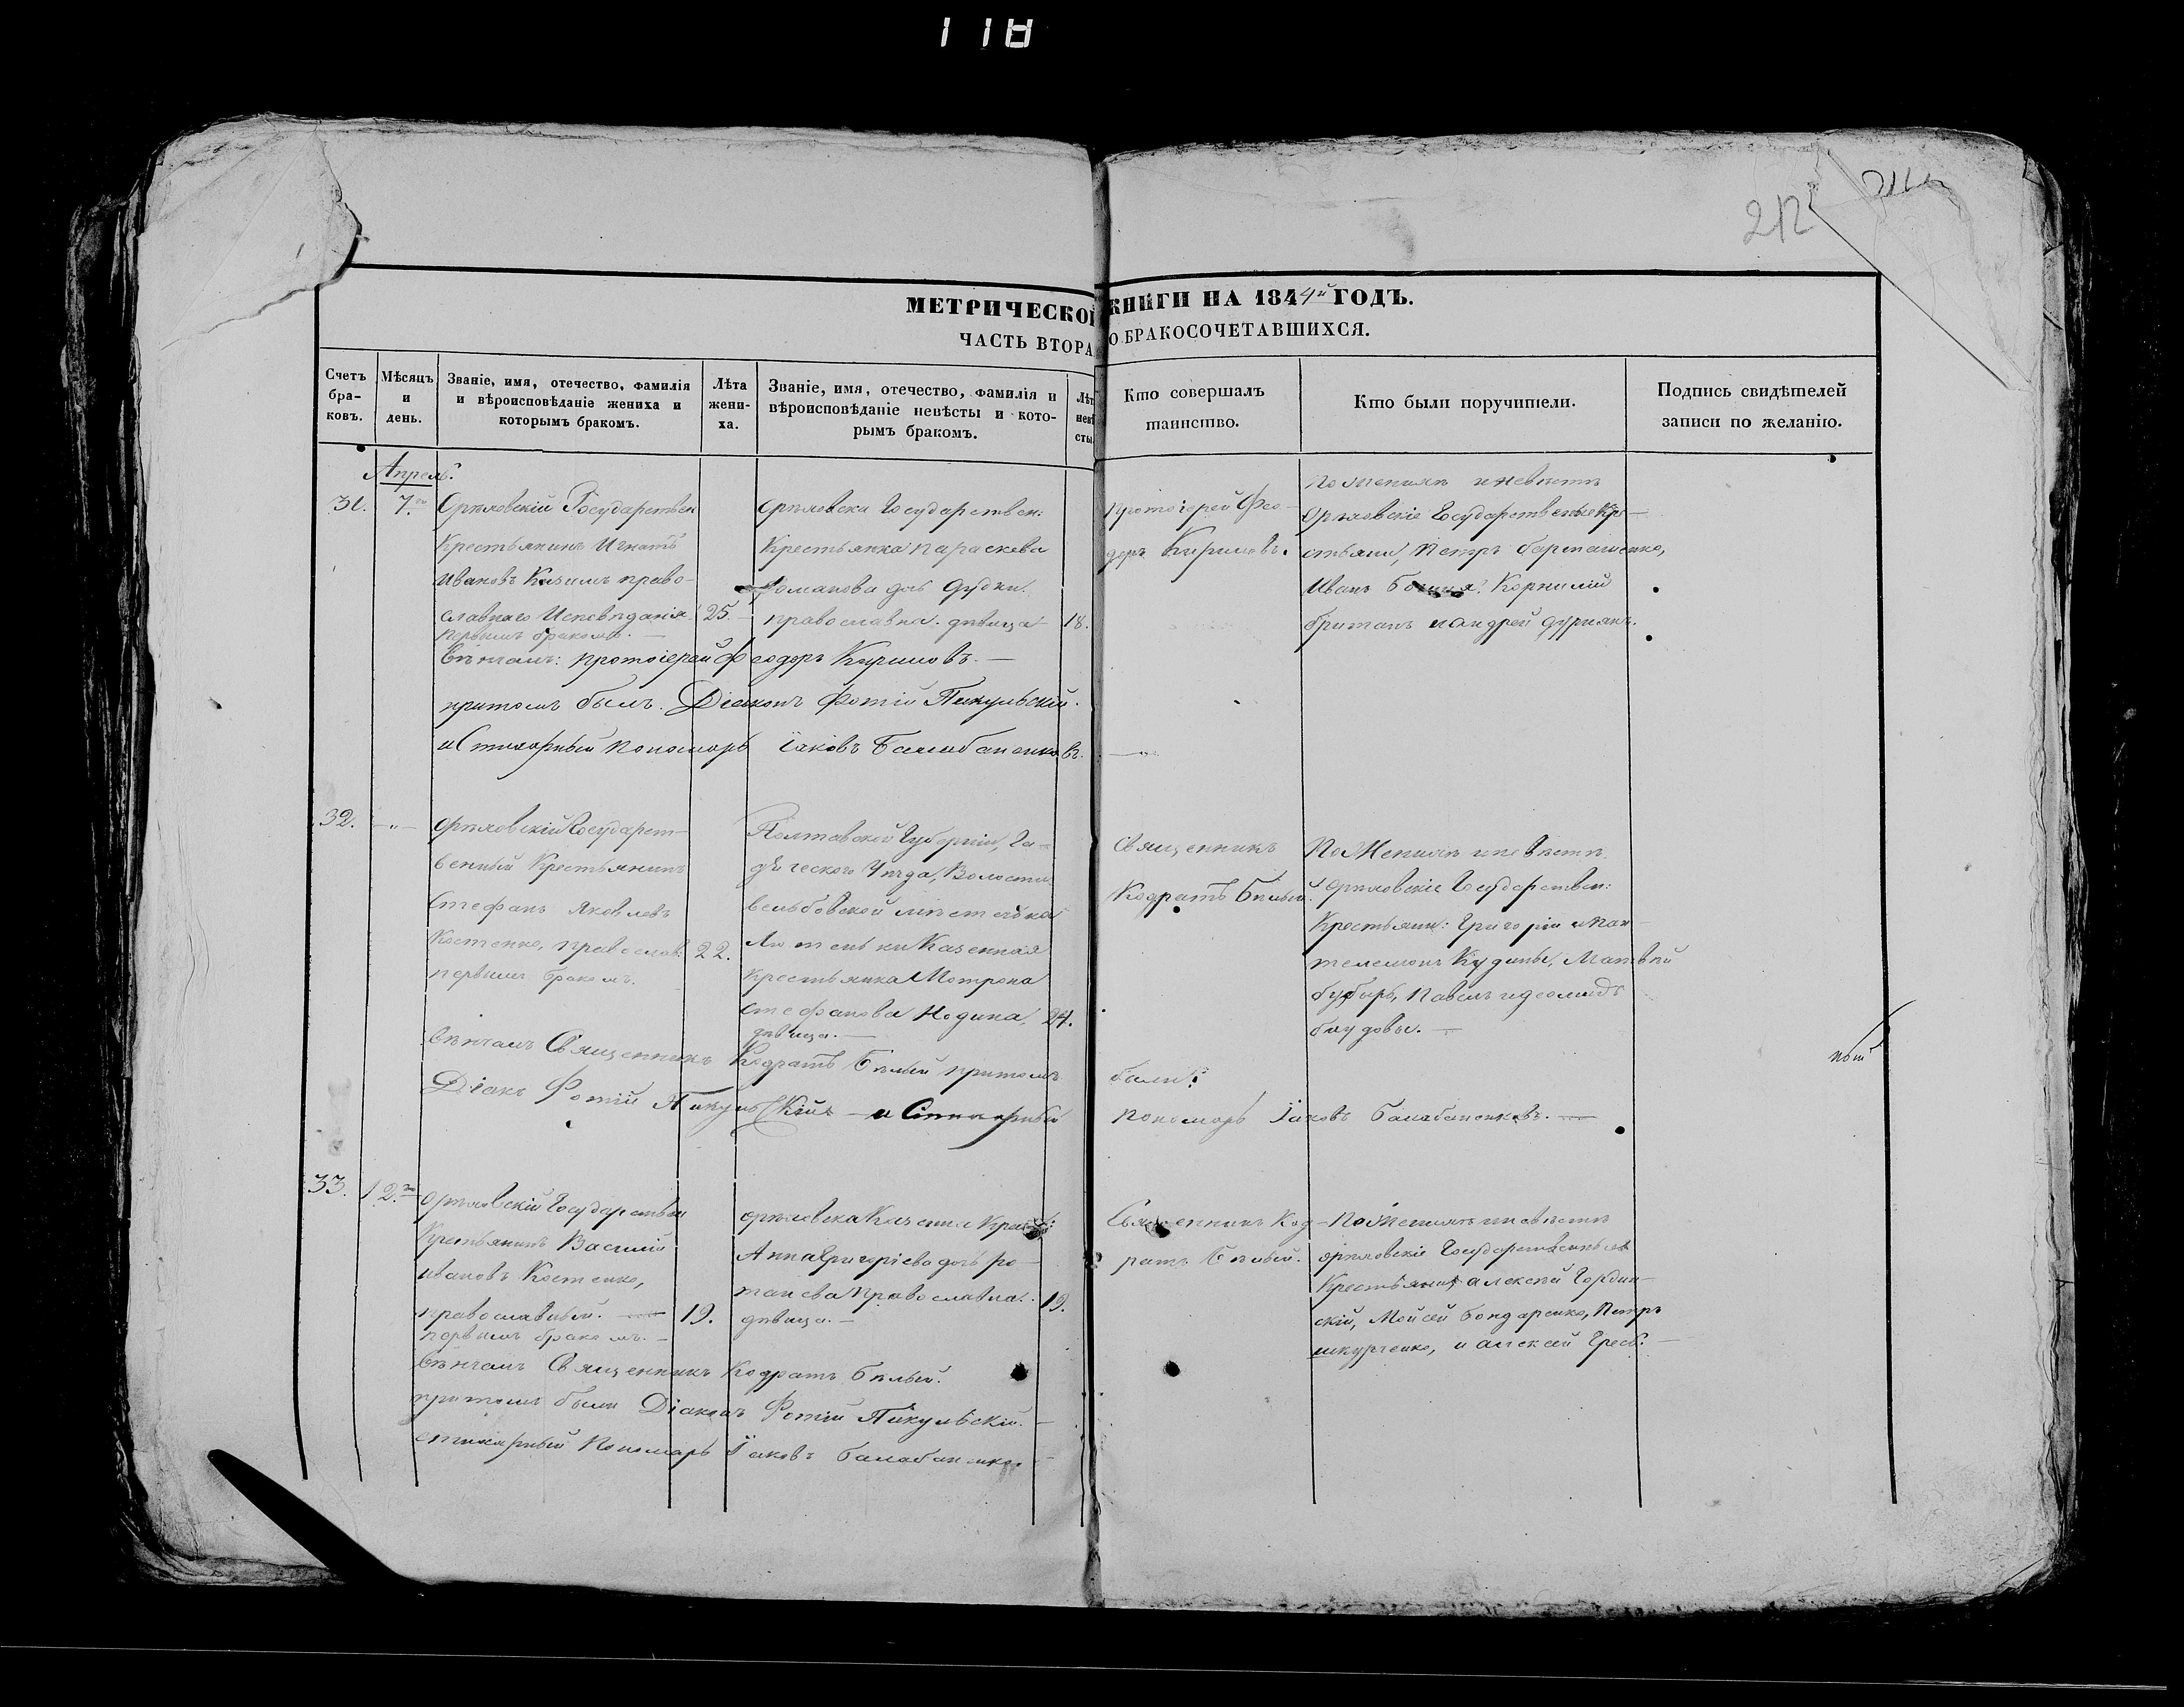 118
212
МЕТРИЧЕСКОЙ КНИГИ НА 1844й ГОДЪ.
ЧАСТЬ ВТОРА О БРАКОСОЧЕТАВШИХСЯ.
Счетъ бра-ковъ.
Мѣсяцъ и день.
Званіе, имя, отечество, фамилія и вѣроисповѣданіе жениха и которымъ бракомъ.
Лѣта жени-ха.
Званіе, имя, отечество, фамилія и вѣроисповѣданіе невѣсты и кото-рымъ бракомъ.
Лѣт невѣ сты
Кто совершалъ таинство.
Кто были поручители.
Подпись свидѣтелей записи по желанію.
Апрель.
31. 7.
Орѣловскій Государствен
Крестьянинъ Игнатъ
Ивановъ право-
славнаго Исповѣданія
первымъ бракомъ.
25.
Орѣловска Государствен:
Крестьянка Параскева
Романова дочь Дудки
православна. дѣвица
18.
Протоіерей Фео-
доръ Кириловъ.
По женихѣ и невѣстѣ
Орѣловскіе Государственные Кре-
стьяни, Петръ
Иванъ Корнилій
и Андрей
Вѣнчалъ: протоіерей Феодоръ Кириловъ. —
притомъ былъ. Діаконъ Фотій Пикульскій.
и Стихарный пономарь Іаковъ Балабаненковъ.
32. — „ —
Орѣловскій Государст-
венный Крестьянинъ
Стефанъ Яковлевъ
Костенко, православ:
первымъ бракомъ.
22.
Полтавской Губерніи, Га-
дяческого Уѣзда, Волости
мѣстечка
Казенная
Крестьянка Мотрона
Стефанова
дѣвица. —
24.
Священникъ
Кодратъ Бѣлый.
По Женихѣ и невѣстѣ
Орѣловскіе Государствен:
Крестьяни: Григорій и Пан-
телемонъ Кудины, Матвѣй
бубырь, Павелъ
Вѣнчалъ Священникъ Кодратъ Бѣлый притомъ были:
Діаконъ Фотій Пикульскій — и Стихарный пономарь Іаковъ Балабаненковъ. —
33. 12.
Орѣловскій Государствен
Крестьянинъ Василій
Ивановъ Костенко,
православный. —
первымъ бракомъ. —
19.
Орѣловска Казенна
Анна Григоріева дочь
православна.
дѣвица. —
19.
Священникъ Код-
ратъ Бѣлый.
По Женихѣ и невѣстѣ
Орѣловскіе Государственные
Крестьяни, Алексѣй
скій, Мойсей Бондаренко, Петръ
шкурченко, и Алексей
Вѣнчалъ Священникъ Кодратъ Бѣлый.
притомъ были Діаконъ Фотій Пикульскій. —
стихарный Пономарь Іаковъ Балабаненко.